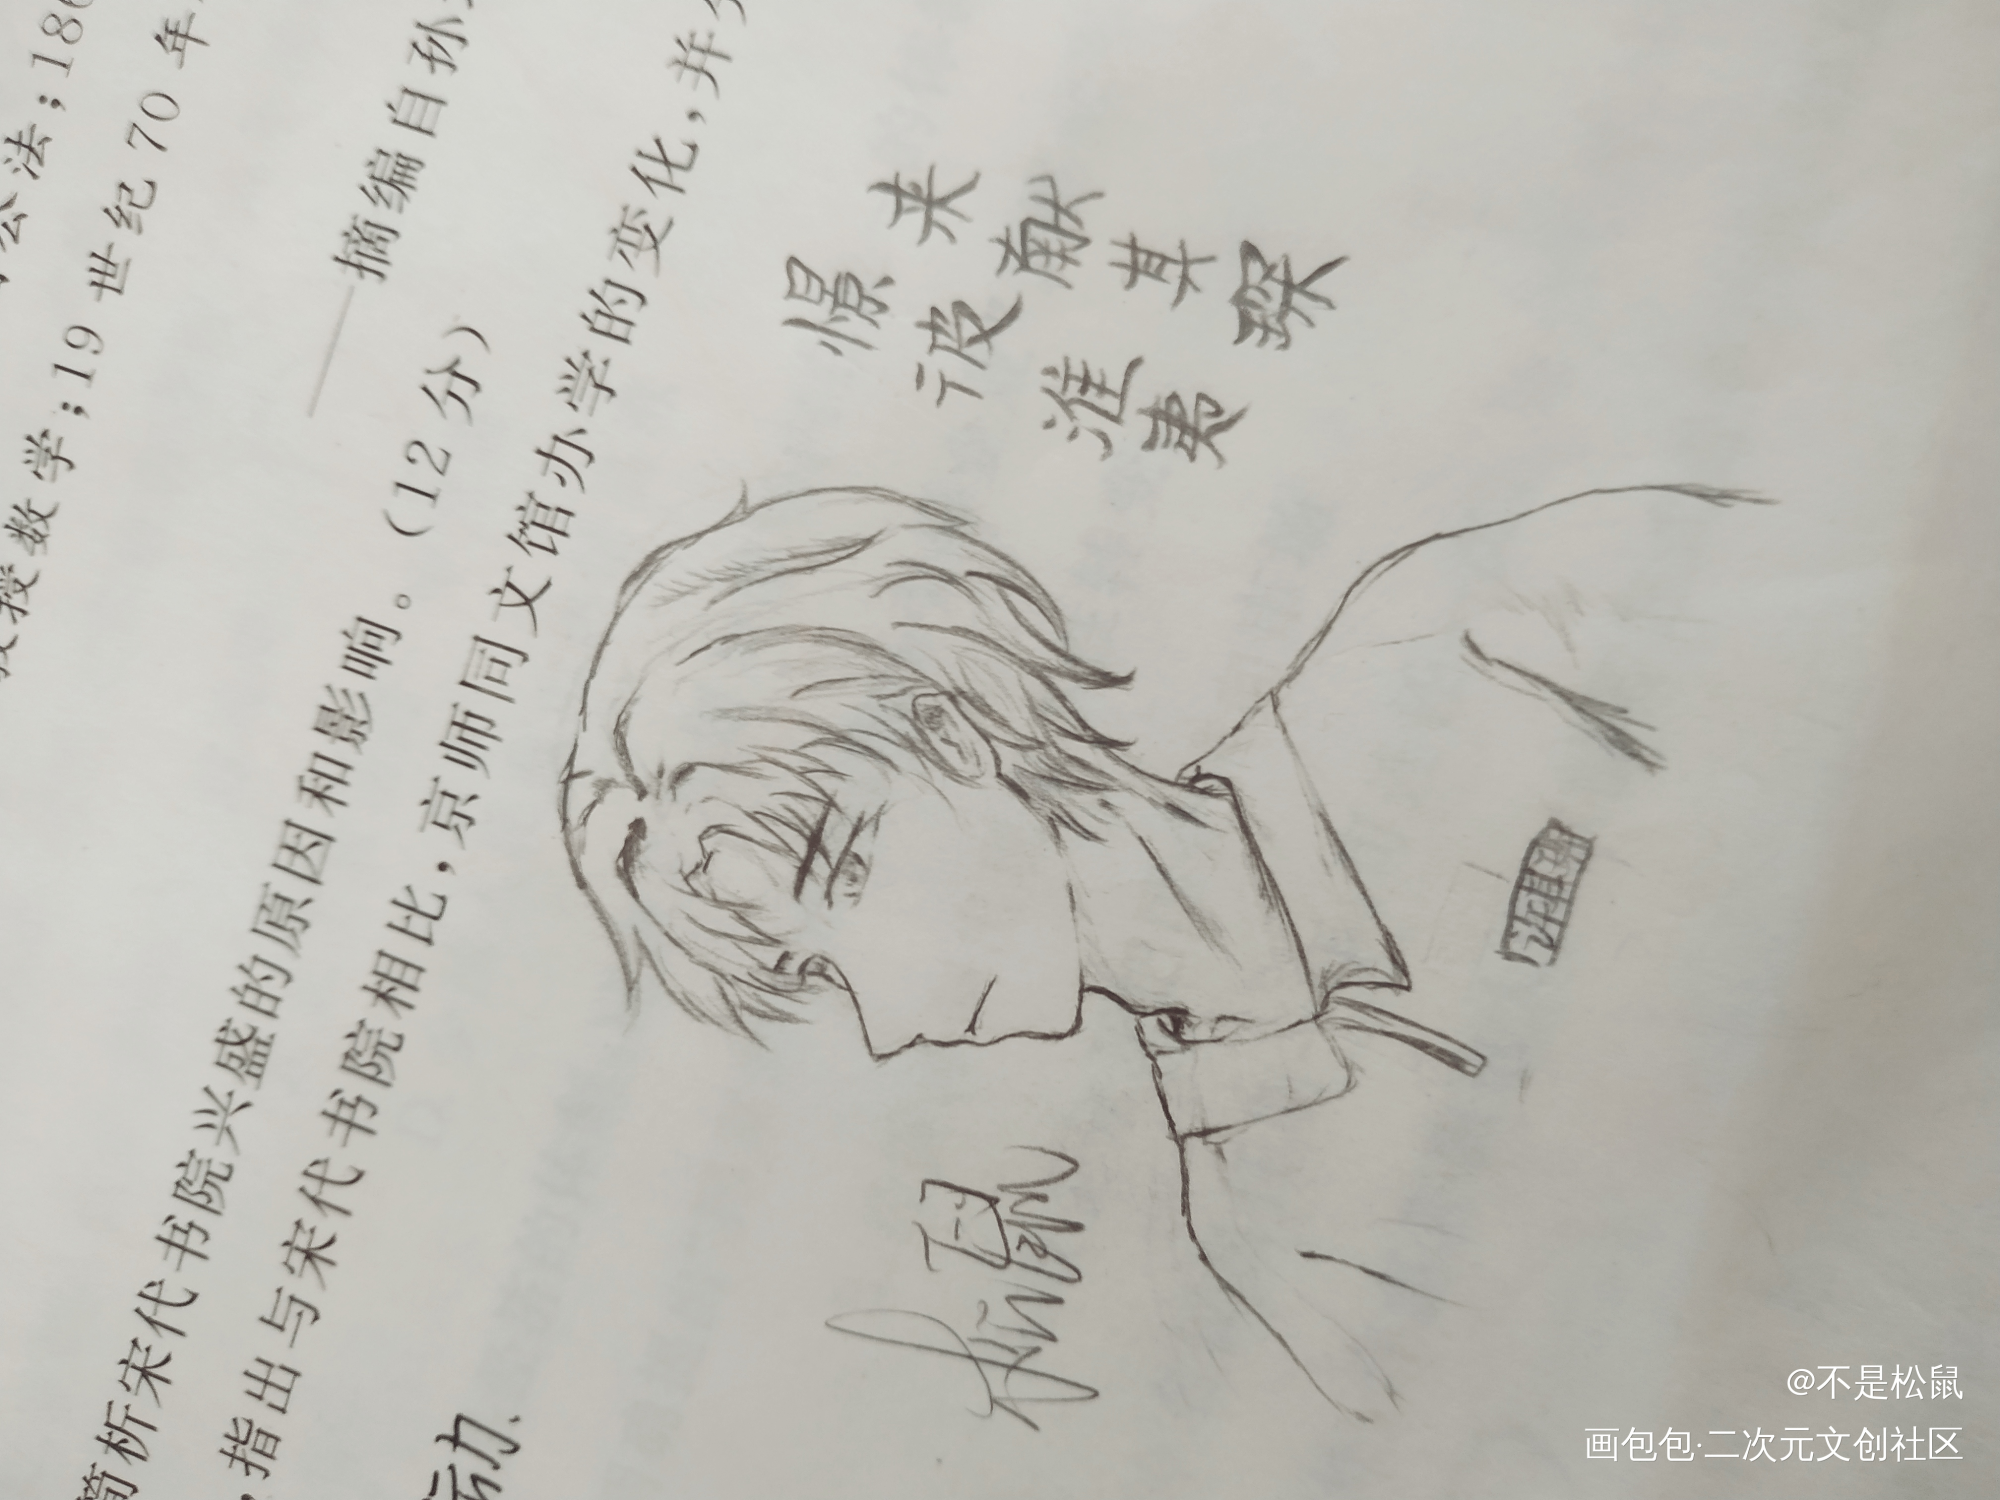 公法;186
教授数学;19世纪70年
——摘编自孙
简析宋代书院兴盛的原因和影响。(12分)
,指出与宋代书院相比,京师同文馆办学的变化,并
运动.
憬彼淮夷
来献其琛
松鼠
@不是松鼠
画包包·二次元文创社区